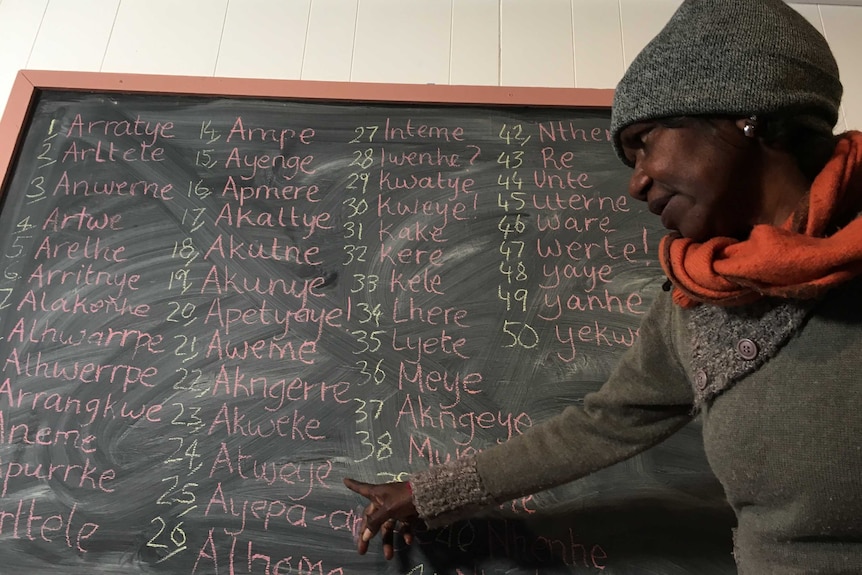 1 Arratye
2, Arltele
3, Aniwerne
4 Artwe
5 Arelhe
6 Arritnye
7 Alakenhe
Alhwarrpe
Alhwerrpe
Arrangkwe
14, Ampe
15, Ayenge
16, Apmere
17, Akaltye
18, Akutne
19, Akunye
20, Apetyaye!
21, Aweme
22, Akngerre
23, Akweke
24, Atweye
25,
26, Alheme
27 Inteme
28 Iwenhe?
29 Kwatye
30 Kweye!
31 Kake
32 Kere
33 Kele
34 Lhere
35 Lyete
36 Meye
37 Akngeye
38
42,
43 Re
44 Unte
45 Uterne
46 Ware
47 Werte!
48 Yaye
49 Yanhe
50